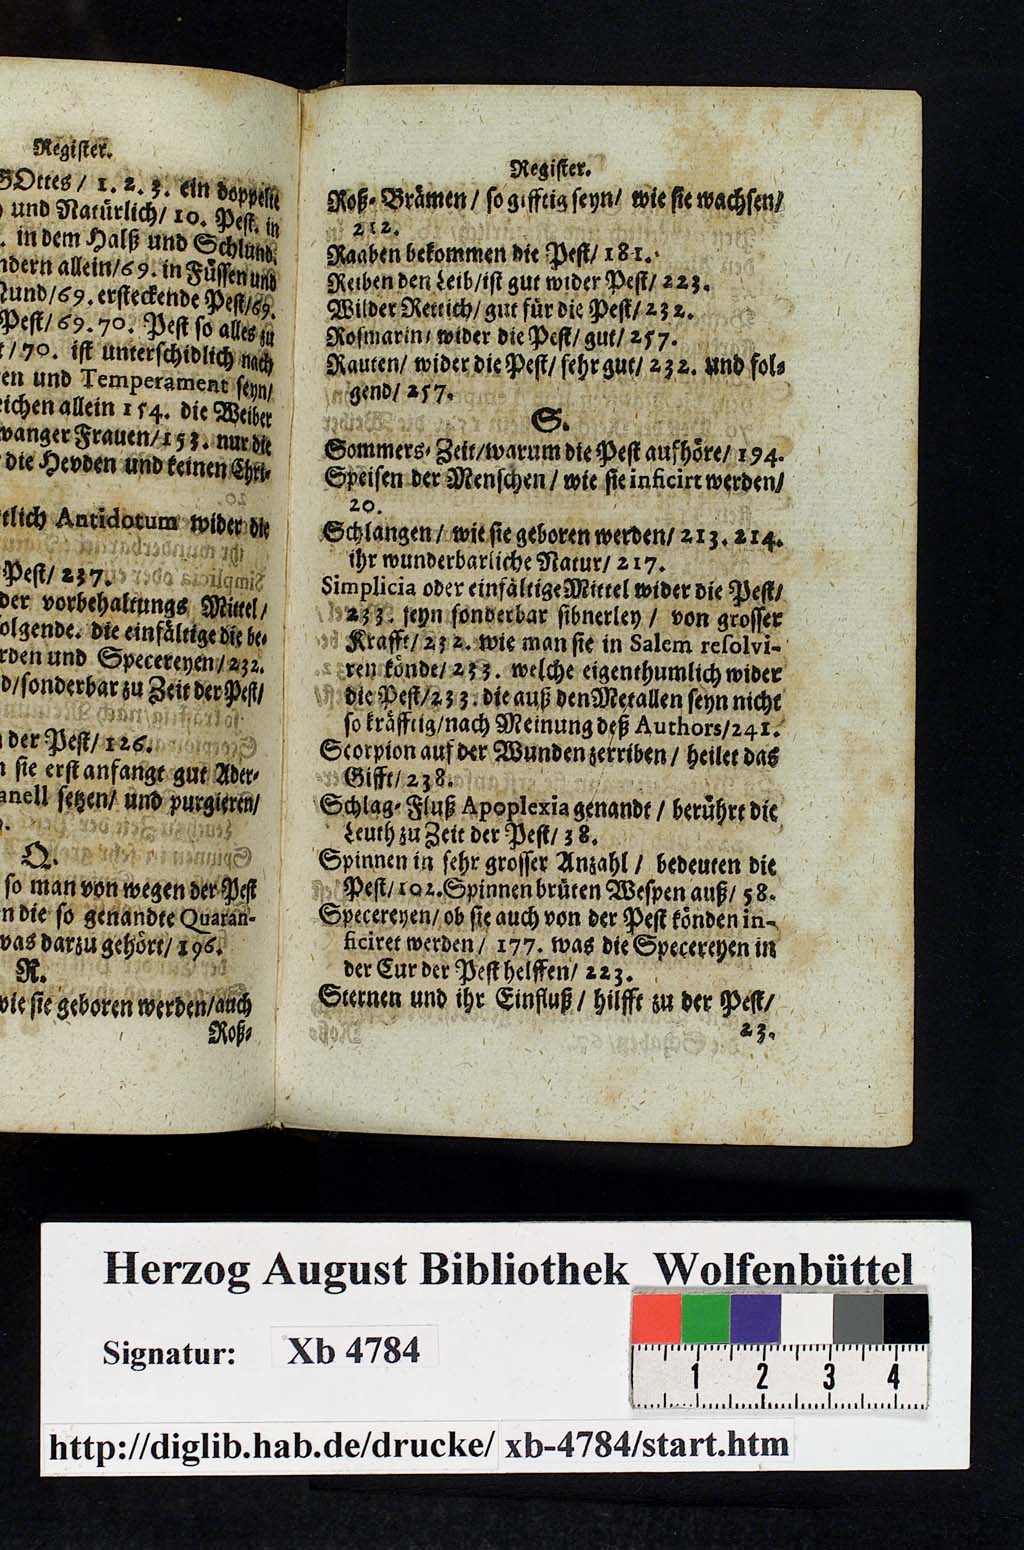 Register.
GOttes / 1. 2. 3. ein doppelte
und Natürlich / 10. Pest. in
. in dem Halß und Schlund.
ndern allein / 69. in Füssen und
Mund / 69. ersteckende Pest / 69.
Pest / 69. 70. Pest so alles zu
/ 70. ist unterschidlich nach
en und Temperament seyn /
eichen allein 154. die Weiber
wanger Frauen / 153. nur die
die Heyden und keinen Chri-
tlich Antidotum wider die
Pest / 237.
der vorbehaltungs Mittel /
olgende. die einfältige die be-
rden und Specereyen / 232.
d / sonderbar zu Zeit der Pest /
der Pest / 126.
n sie erst anfangt gut Ader-
anell setzen / und purgieren /
Q.
so man von wegen der Pest
n die so genandte Quaran-
was darzu gehört / 196.
R.
wie sie geboren werden / auch
Roß-
Register.
Roß-Brämen / so gifftig seyn / wie sie wachsen /
212.
Raaben bekommen die Pest / 181.
Reiben den Leib / ist gut wider Pest / 223.
Wilder Rettich / gut für die Pest / 232.
Rosmarin / wider die Pest / gut / 257.
Rauten / wider die Pest / sehr gut / 232. und fol-
gend / 257.
S.
Sommers-Zeit / warum die Pest aufhöre / 194.
Speisen der Menschen / wie sie inficirt werden /
20.
Schlangen / wie sie geboren werden / 213. 214.
ihr wunderbarliche Natur / 217.
Simplicia oder einfältige Mittel wider die Pest /
233. seyn sonderbar sibnerley / von grosser
Krafft / 232. wie man sie in Salem resolvi-
ren könde / 233. welche eigenthumlich wider
die Pest / 233. die auß den Metallen seyn nicht
so kräfftig / nach Meinung deß Authors / 241.
Scorpion auf der Wunden zerriben / heilet das
Gifft / 238.
Schlag-Fluß Apoplexia genandt / berührt die
Leuth zu Zeit der Pest / 38.
Spinnen in sehr grosser Anzahl / bedeuten die
Pest / 102. Spinnen brüten Wespen auß / 58.
Specereyen / ob sie auch von der Pest könden in-
ficiret werden / 177. was die Specereyen in
der Cur der Pest helffen / 223.
Sternen und ihr Einfluß / hilfft zu der Pest /
23.
Herzog August Bibliothek Wolfenbüttel
Signatur: Xb 4784
1 2 3 4
http://diglib.hab.de/drucke/ xb-4784/start.htm